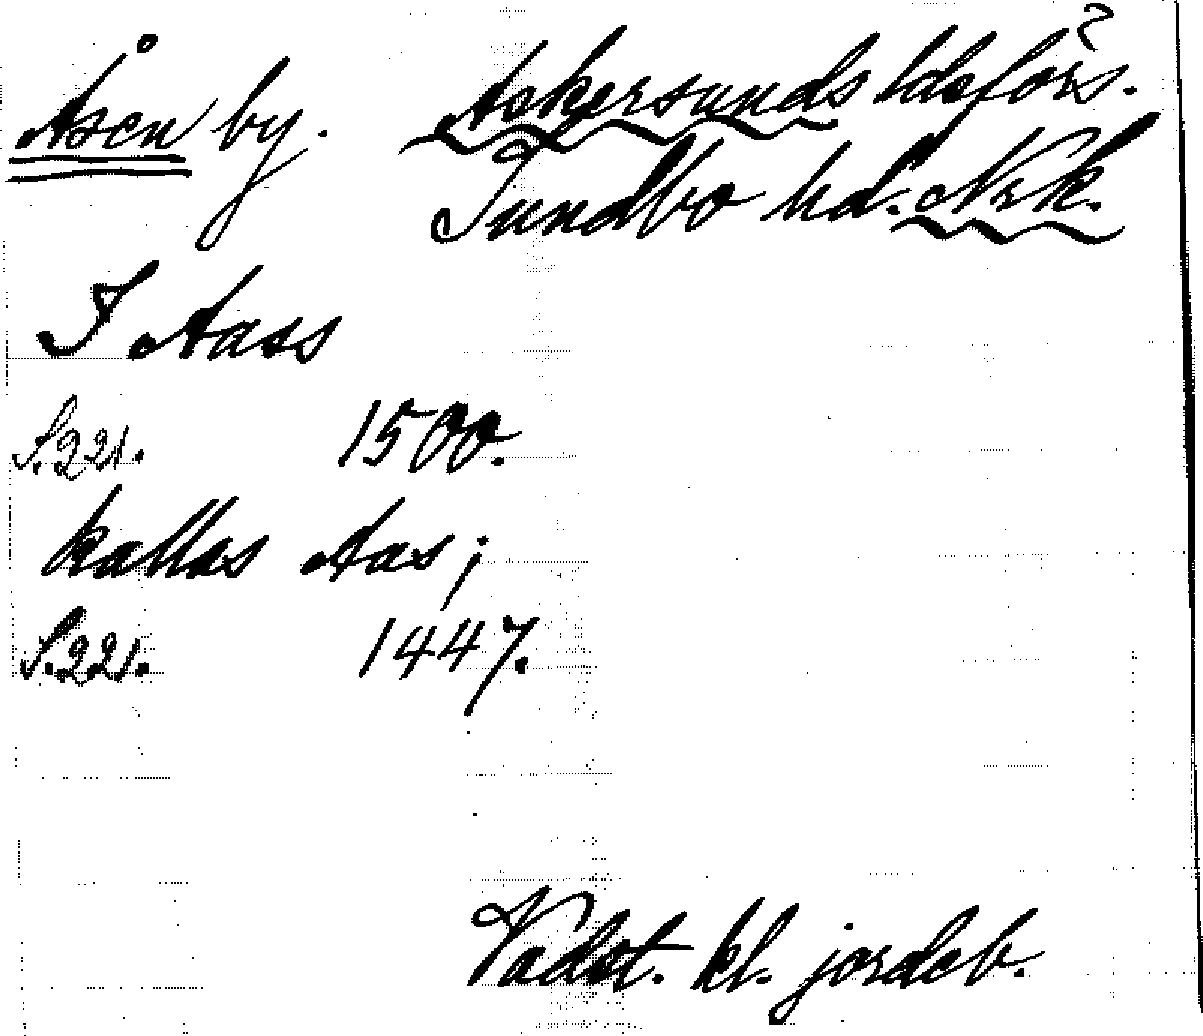 Åsen by. Askersunds ldsförs.?
Sundbo hd. Nrk.
I Aass
S. 221. 1500.
kallas Aas;
S. 221. 1447.
Vadst. kl. jordeb.